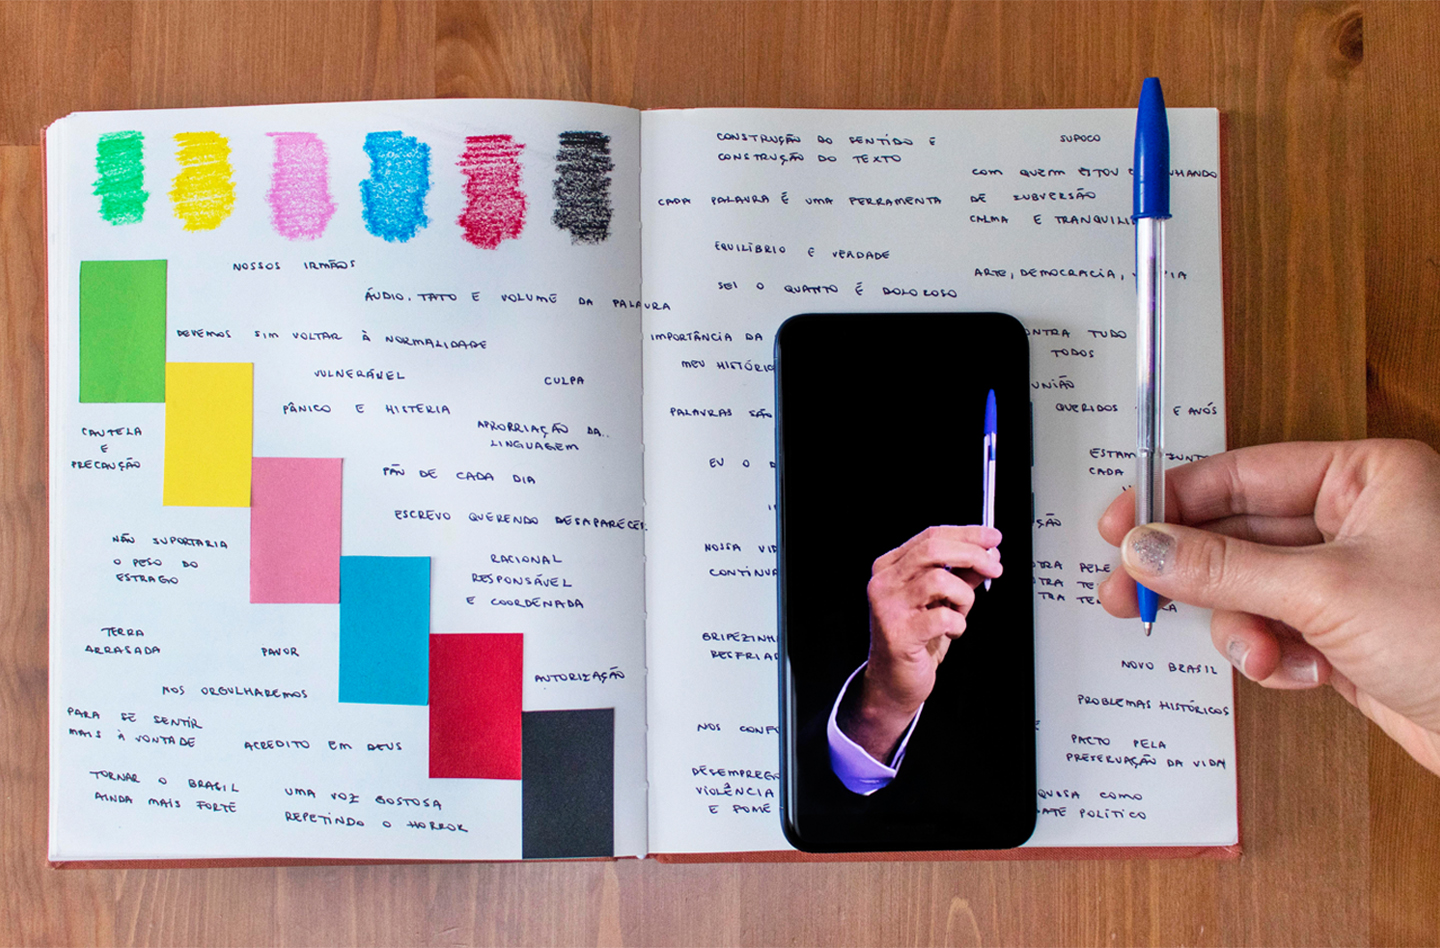 NOSSOS IRMÃOS
ÁUDIO, TATO E VOLUME DA PALAVRA
DEVEMOS SIM VOLTAR À NORMALIDADE
VULNERÁVEL
CULPA
PÂNICO E HISTERIA
CAUTELA
E
PRECAUÇÃO
APROPRIAÇÃO DA..
LINGUAGEM
PÃO DE CADA DIA
ESCREVO QUERENDO DESAPARECER
NÃO SUPORTARIA
O PESO DO
ESTRAGO
RACIONAL
RESPONSÁVEL
E COORDENADA
TERRA
ARRASADA
PAVOR
AUTORIZAÇÃO
NOS ORGULHAREMOS
PARA SE SENTIR
MAIS À VONTADE
ACREDITO EM DEUS
TORNAR O BRASIL
AINDA MAIS FORTE
UMA VOZ GOSTOSA
REPETINDO O HORROR
CONSTRUÇÃO DO SENTIDO E
CONSTRUÇÃO DO TEXTO
SUFOCO
COM QUEM ESTOU
CADA PALAVRA É UMA FERRAMENTA
DE SUBVERSÃO
CALMA E
EQUILÍBRIO E VERDADE
ARTE, DEMOCRACIA,
SEI O QUANTO É DOLOROSO
IMPORTÂNCIA DA
TUDO
TODOS
MEU
UNIÃO
PALAVRAS SÃO
QUERIDOS E AVÓS
EU O
CADA
NOSSA
PELE
NOVO BRASIL
PROBLEMAS HISTÓRICOS
NOS
PACTO PELA
PRESERVAÇÃO DA VIDA
VIOLÊNCIA
E FOME
COMO
POLÍTICO